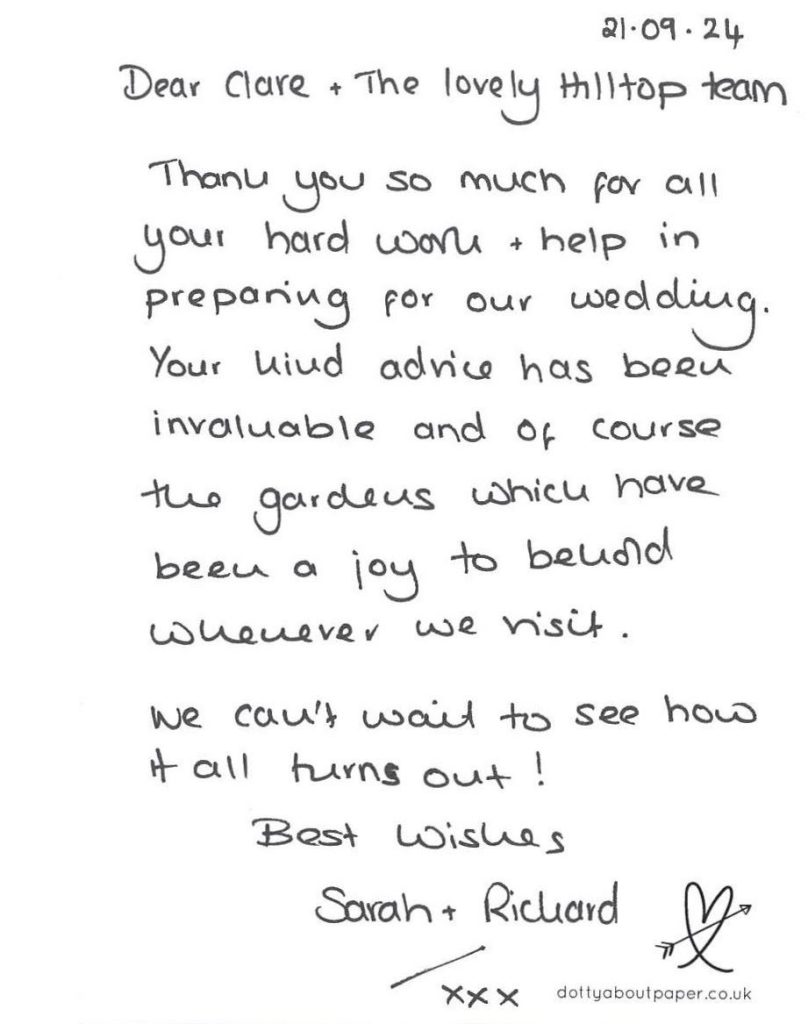 21.09.24
Dear Clare + The lovely Hilltop team
Thank you so much for all
your hard work + help in
preparing for our wedding.
Your kind advice has been
invaluable and of course
the gardens which have
been a joy to behold
whenever we visit.
We can't wait to see how
it all turns out!
Best Wishes
Sarah + Richard
xxx
dottyaboutpaper.co.uk